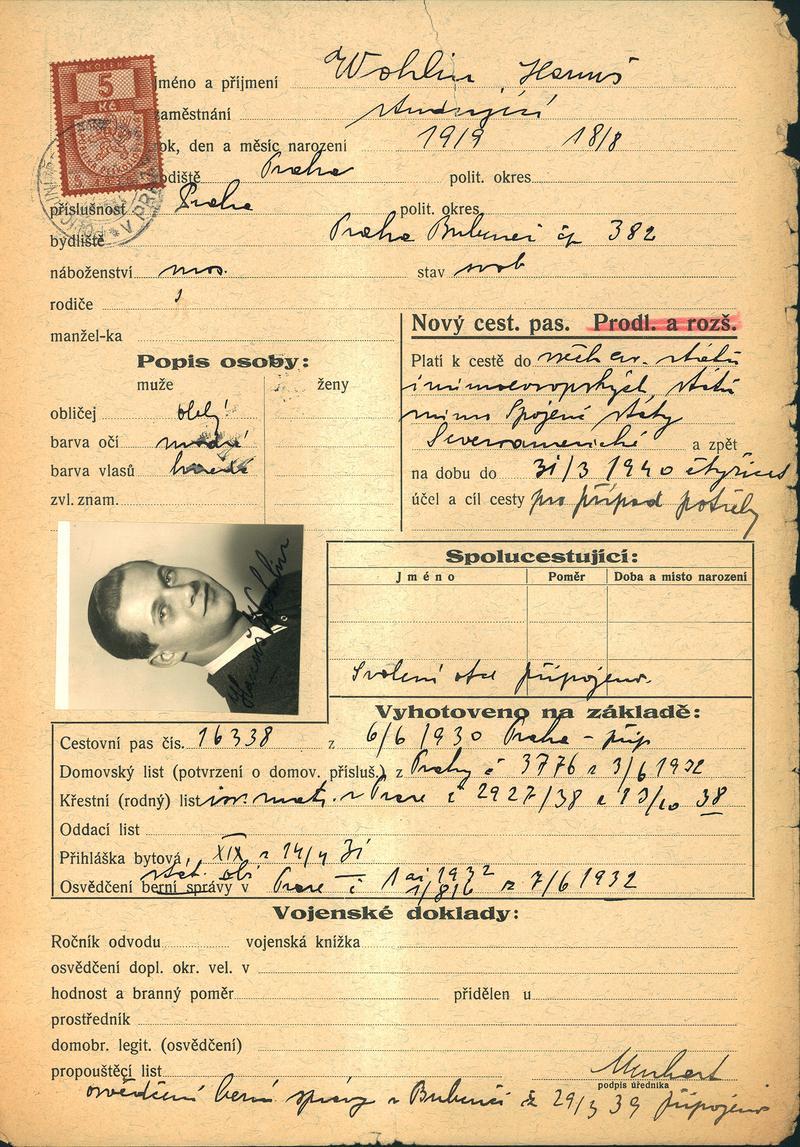 5
Kč
V PRAZE
jméno a příjmení Wohlin Hanuš
zaměstnání studující
rok, den a měsíc narození 1919 18/8
rodiště Praha polit. okres
příslušnost Praha polit. okres
bydliště Praha Bubeneč čp 382
náboženství mos. stav svob
rodiče
manžel-ka
Popis osoby:
muže ženy
obličej oblý
barva očí modré
barva vlasů hnědé
zvl. znam.
Nový cest. pas. Prodl. a rozš.
Platí k cestě do všech ev. států
i mimoevropských států
mimo Spojené státy
Severoamerické a zpět
na dobu do 31/3 1940 čtyřicet
účel a cíl cesty pro případ potřeby
Hanuš Wohlin
Spolucestující:
Jméno Poměr Doba a místo narození
Svolení otce připojeno.
Vyhotoveno na základě:
Cestovní pas čís. 16338 z 6/6 1930 Praha - příp
Domovský list (potvrzení o domov. přísluš.) z Prahy č 3776 z 3/6 1932
Křestní (rodný) list isr. mat. v Praze č 2927/38 z 13/10 38
Oddací list
Přihláška bytová XIX z 14/4 31
stát. ob.
Osvědčení berní správy v Praze č 1 ai 1932 z 7/6 1932
1/816
Vojenské doklady:
Ročník odvodu vojenská knížka
osvědčení dopl. okr. vel. v
hodnost a branný poměr přidělen u
prostředník
domobr. legit. (osvědčení)
propouštěcí list
podpis úředníka
osvědčení berní správy v Bubenči z 29/3 39 připojeno